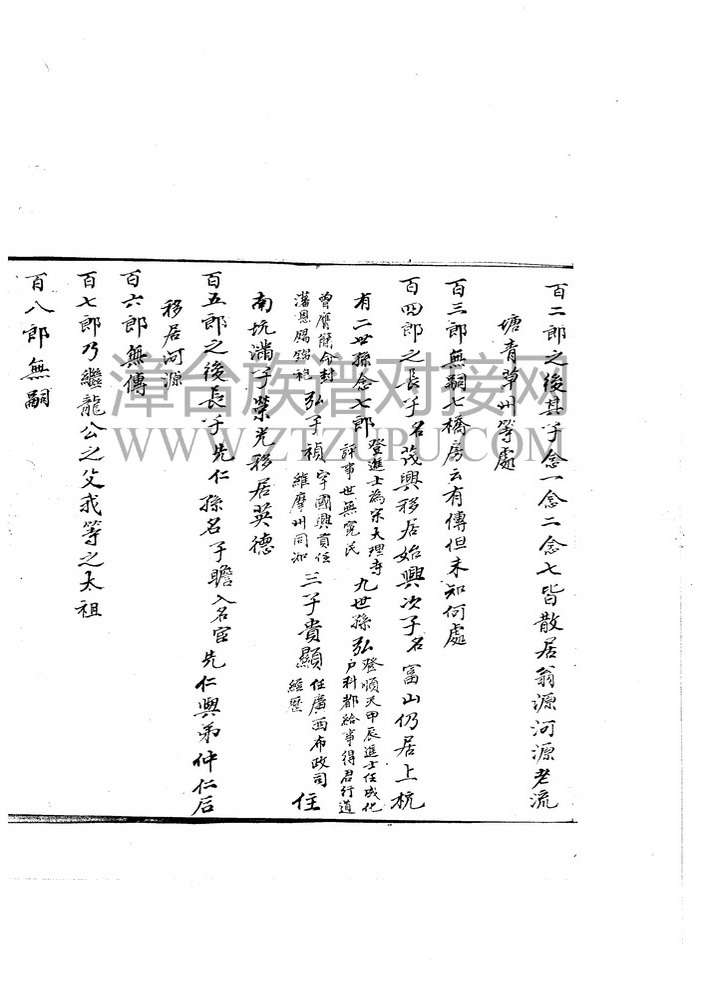 百二郎之後其子念一念二念七皆散居翁源河源老流
塘青草州等處
百三郎無嗣七橋房云有傳但未知何處
百四郎之長子名茂興移居始興次子名富山仍居上杭
有二世孫念七郎登進士為宋大理寺評事世無冤民九世孫弘登順天甲辰進士任成化戶科都給事得君行道
曾膺簡命封藩恩賜蟒袍弘子禎字國興貢任維摩州同知三子貴顯任廣西布政司經歷住
南坑滿子榮光移居英德
百五郎之後長子先仁孫名子瞻入名宦先仁與弟仲仁后
移居河源
百六郎無傳
百七郎乃繼龍公之父我等之太祖
百八郎無嗣
漳台族谱对接网
WWW.ZTZUPU.COM